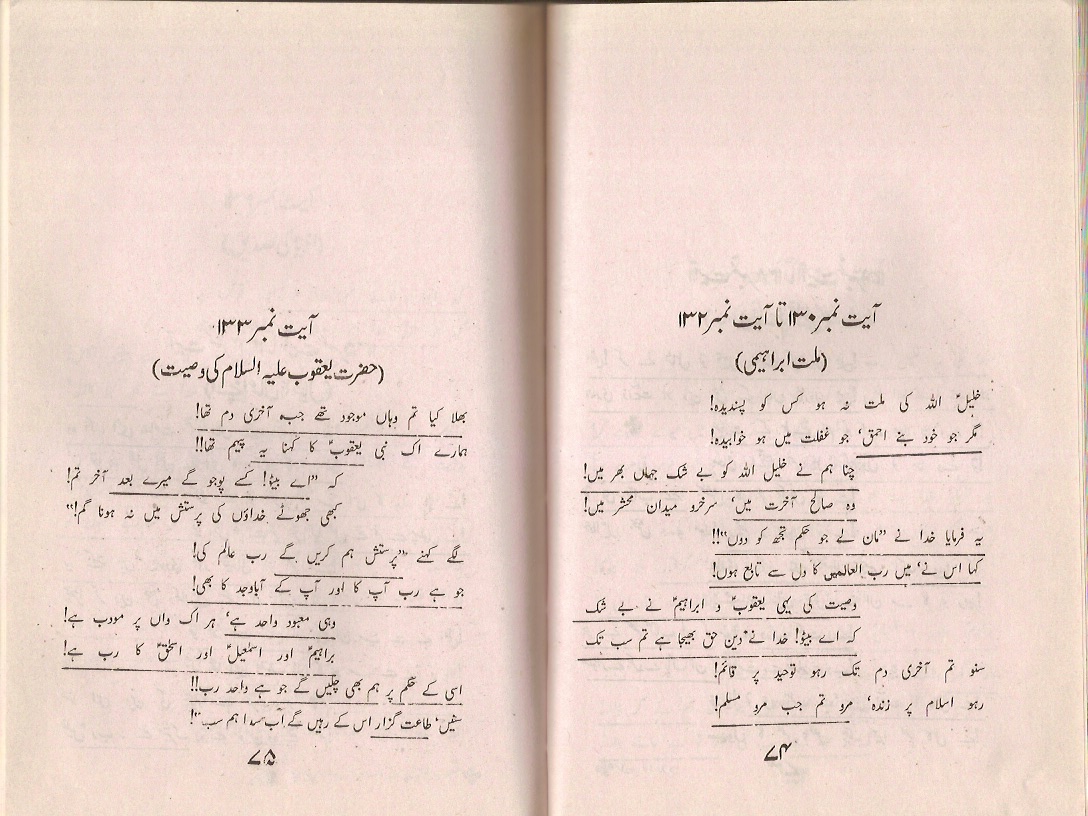 آیت نمبر ۱۳۰ تا آیت نمبر ۱۳۲
(ملت ابراہیمی)
خلیلؑ اللہ کی ملت نہ ہو کس کو پسندیدہ!
مگر جو خود بنے احمق، جو غفلت میں ہو خوابیدہ!
چنا ہم نے خلیل اللہ کو بے شک جہاں بھر میں!
وہ صالح آخرت میں، سرخرو میدان محشر میں!
یہ فرمایا خدا نے "مان لے جو حکم تجھ کو دوں"!!
کہا اس نے، میں رب العالمیں کا دل سے تابع ہوں!
وصیت کی یہی یعقوبؑ و ابراہیمؑ نے بے شک
کہ اے بیٹو! خدا نے دین حق بھیجا ہے تم سب تک
سنو تم آخری دم تک رہو توحید پر قائم!
رہو اسلام پر زندہ، مرو تم جب مرو مسلم!
۷۴
آیت نمبر ۱۳۳
(حضرت یعقوب علیہ السلام کی وصیت)
بھلا کیا تم وہاں موجود تھے جب آخری دم تھا!
ہمارے اک نبی یعقوبؑ کا کہنا یہ پیہم تھا!!
کہ "اے بیٹو! کسے پوجو گے میرے بعد آخر تم!
کبھی جھوٹے خداؤں کی پرستش میں نہ ہونا گم!"
لگے کہنے "پرستش ہم کریں گے رب عالم کی!
جو ہے رب آپ کا اور آپ کے آباوجد کا بھی!
وہی معبود واحد ہے، ہر اک واں پر مودب ہے!
براہیمؑ اور اسمٰعیلؑ اور اسحٰقؑ کا رب ہے!
اسی کے حکم پر ہم بھی چلیں گے جو ہے واحد رب!!
سنیں، طاعت گزار اس کے رہیں گے اب سدا ہم سب"!
۷۵